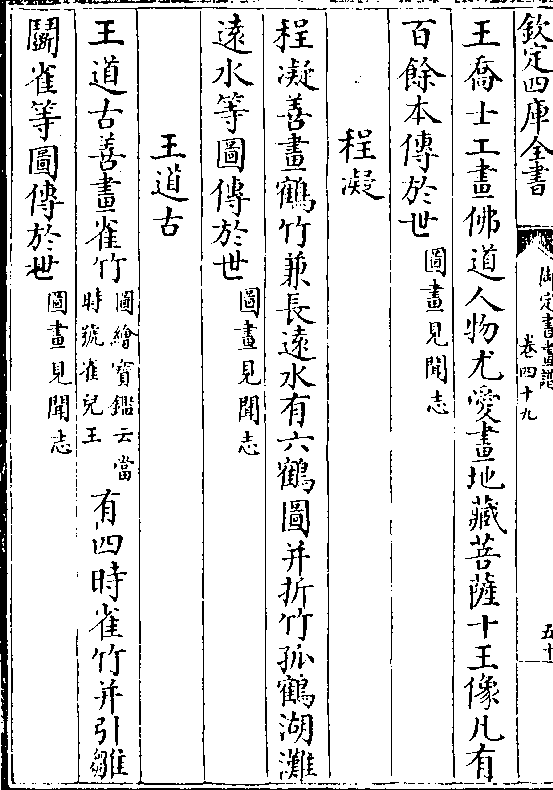 欽定四庫全書
御定書畫譜
卷四十九
王喬士工畫佛道人物尤愛畫地藏菩薩十王像凡有
百餘本傳於世圖畫見聞志
程凝
程凝善畫鶴竹兼長遠水有六鶴圖并折竹孤鶴湖灘
遠水等圖傳於世圖畫見聞志
王道古
王道古善畫雀竹圖繪寶鑑云當時號雀兒王有四時雀竹并引雛
鬭雀等圖傳於世圖畫見聞志